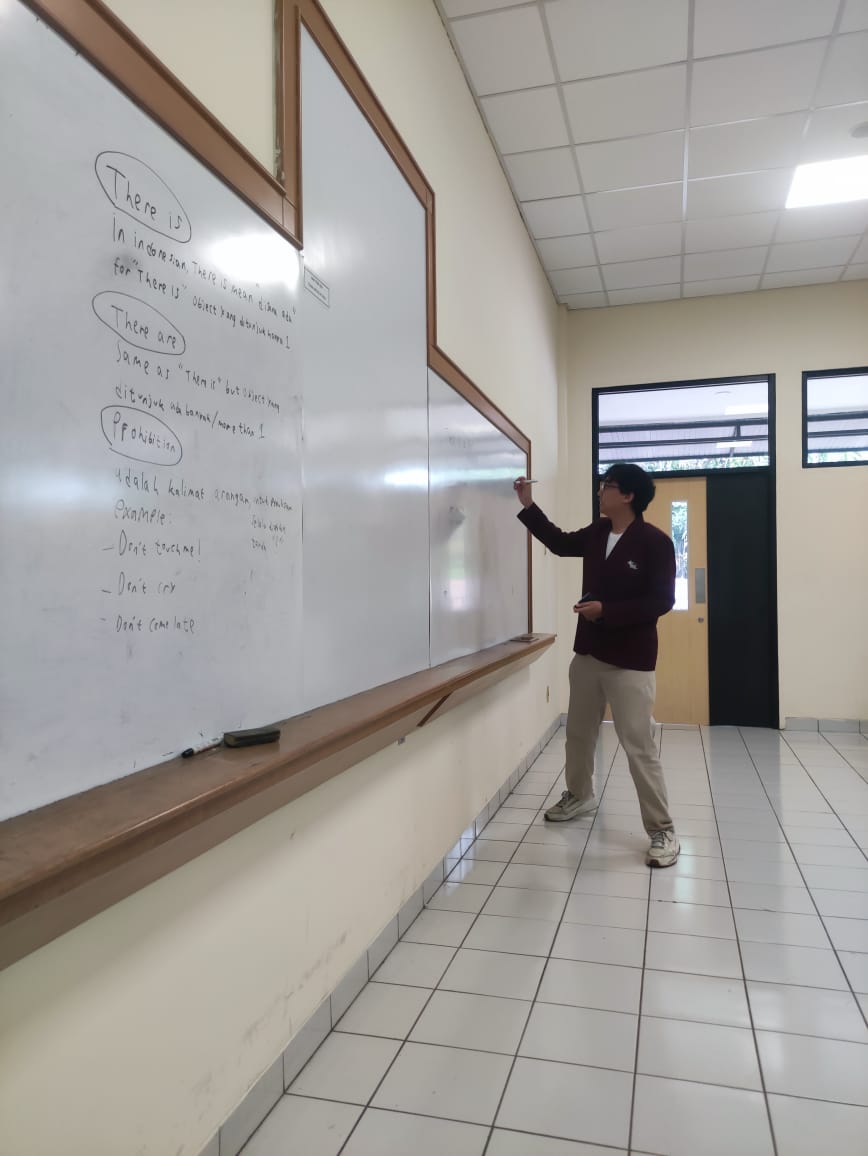 There is
In indonesian, There is mean "disana ada"
for "There is" object yang ditunjuk hanya 1
There are
Same as "There is" but object yang
ditunjuk ada banyak/more than 1
Prohibition
adalah kalimat
example:
- Don't touch me!
- Don't cry
- Don't come late